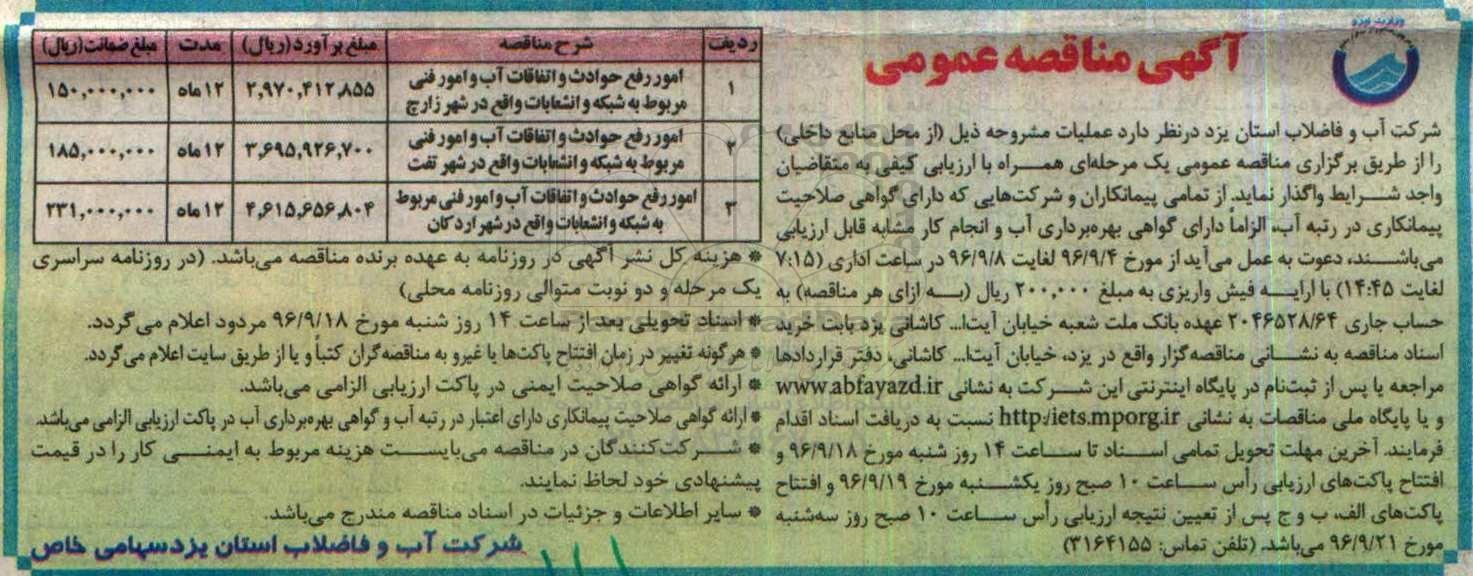 آگهی مناقصه عمومی
شرکت آب و فاضلاب استان یزد درنظر دارد عملیات مشروحه ذیل (از محل منابع داخلی)
را از طریق برگزاری مناقصه عمومی یک مرحله‌ای همراه با ارزیابی کیفی به متقاضیان
واجد شرایط واگذار نماید. از تمامی پیمانکاران و شرکت‌هایی که دارای گواهی صلاحیت
پیمانکاری در رتبه آب، الزاماً دارای گواهی بهره‌برداری آب و انجام کار مشابه قابل ارزیابی
می‌باشند، دعوت به عمل می‌آید از مورخ ۹۶/۹/۴ لغایت ۹۶/۹/۸ در ساعت اداری (۷:۱۵
لغایت ۱۴:۴۵) با ارایه فیش واریزی به مبلغ ۲۰۰,۰۰۰ ریال (به ازای هر مناقصه) به
حساب جاری ۲۰۴۶۵۲۸/۶۴ عهده بانک ملت شعبه خیابان آیت‌ا... کاشانی یزد بابت خرید
اسناد مناقصه به نشانی مناقصه‌گزار واقع در یزد، خیابان آیت‌ا... کاشانی، دفتر قراردادها
مراجعه یا پس از ثبت‌نام در پایگاه اینترنتی این شرکت به نشانی www.abfayazd.ir
و یا پایگاه ملی مناقصات به نشانی http:/iets.mporg.ir نسبت به دریافت اسناد اقدام
فرمایند. آخرین مهلت تحویل تمامی اسناد تا ساعت ۱۴ روز شنبه مورخ ۹۶/۹/۱۸ و
افتتاح پاکت‌های ارزیابی رأس ساعت ۱۰ صبح روز یکشنبه مورخ ۹۶/۹/۱۹ و افتتاح
پاکت‌های الف، ب و ج پس از تعیین نتیجه ارزیابی رأس ساعت ۱۰ صبح روز سه‌شنبه
مورخ ۹۶/۹/۲۱ می‌باشد. (تلفن تماس: ۳۱۶۴۱۵۵)
ردیف شرح مناقصه مبلغ برآورد (ریال) مدت مبلغ ضمانت (ریال)
۱ امور رفع حوادث و اتفاقات آب و امور فنی ۲,۹۷۰,۴۱۲,۸۵۵ ۱۲ ماه ۱۵۰,۰۰۰,۰۰۰
مربوط به شبکه و انشعابات واقع در شهر زارچ
۲ امور رفع حوادث و اتفاقات آب و امور فنی ۳,۶۹۵,۹۲۶,۷۰۰ ۱۲ ماه ۱۸۵,۰۰۰,۰۰۰
مربوط به شبکه و انشعابات واقع در شهر تفت
۳ امور رفع حوادث و اتفاقات آب و امور فنی مربوط ۴,۶۱۵,۶۵۶,۸۰۴ ۱۲ ماه ۲۳۱,۰۰۰,۰۰۰
به شبکه و انشعابات واقع در شهر اردکان
* هزینه کل نشر آگهی در روزنامه به عهده برنده مناقصه می‌باشد. (در روزنامه سراسری
یک مرحله و دو نوبت متوالی روزنامه محلی)
* اسناد تحویلی بعد از ساعت ۱۴ روز شنبه مورخ ۹۶/۹/۱۸ مردود اعلام می‌گردد.
* هرگونه تغییر در زمان افتتاح پاکت‌ها یا غیرو به مناقصه‌گران کتباً و یا از طریق سایت اعلام می‌گردد.
* ارائه گواهی صلاحیت ایمنی در پاکت ارزیابی الزامی می‌باشد.
* ارائه گواهی صلاحیت پیمانکاری دارای اعتبار در رتبه آب و گواهی بهره‌برداری آب در پاکت ارزیابی الزامی می‌باشد.
* شرکت‌کنندگان در مناقصه می‌بایست هزینه مربوط به ایمنی کار را در قیمت
پیشنهادی خود لحاظ نمایند.
* سایر اطلاعات و جزئیات در اسناد مناقصه مندرج می‌باشد.
شرکت آب و فاضلاب استان یزد سهامی خاص